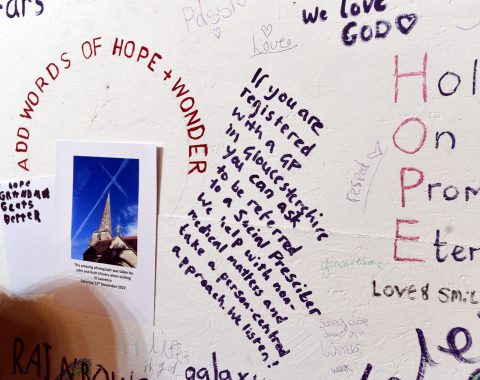 We love
GOD
Love
ADD WORDS OF HOPE + WONDER
If you are
registered
with a GP
in Gloucestershire
you can ask
to be referred
to a Social Prescriber
We help with non-
medical matters and
take a person-centred
approach. We listen!
Hol
On
Prom
Eter
Love & Smil
I hope
GRANDMA
Gets
Better
This amazing photograph was taken by
John and Ruth Chivers when visiting
St Laurence
Saturday 12th November 2022
RAINBOW
galaxy